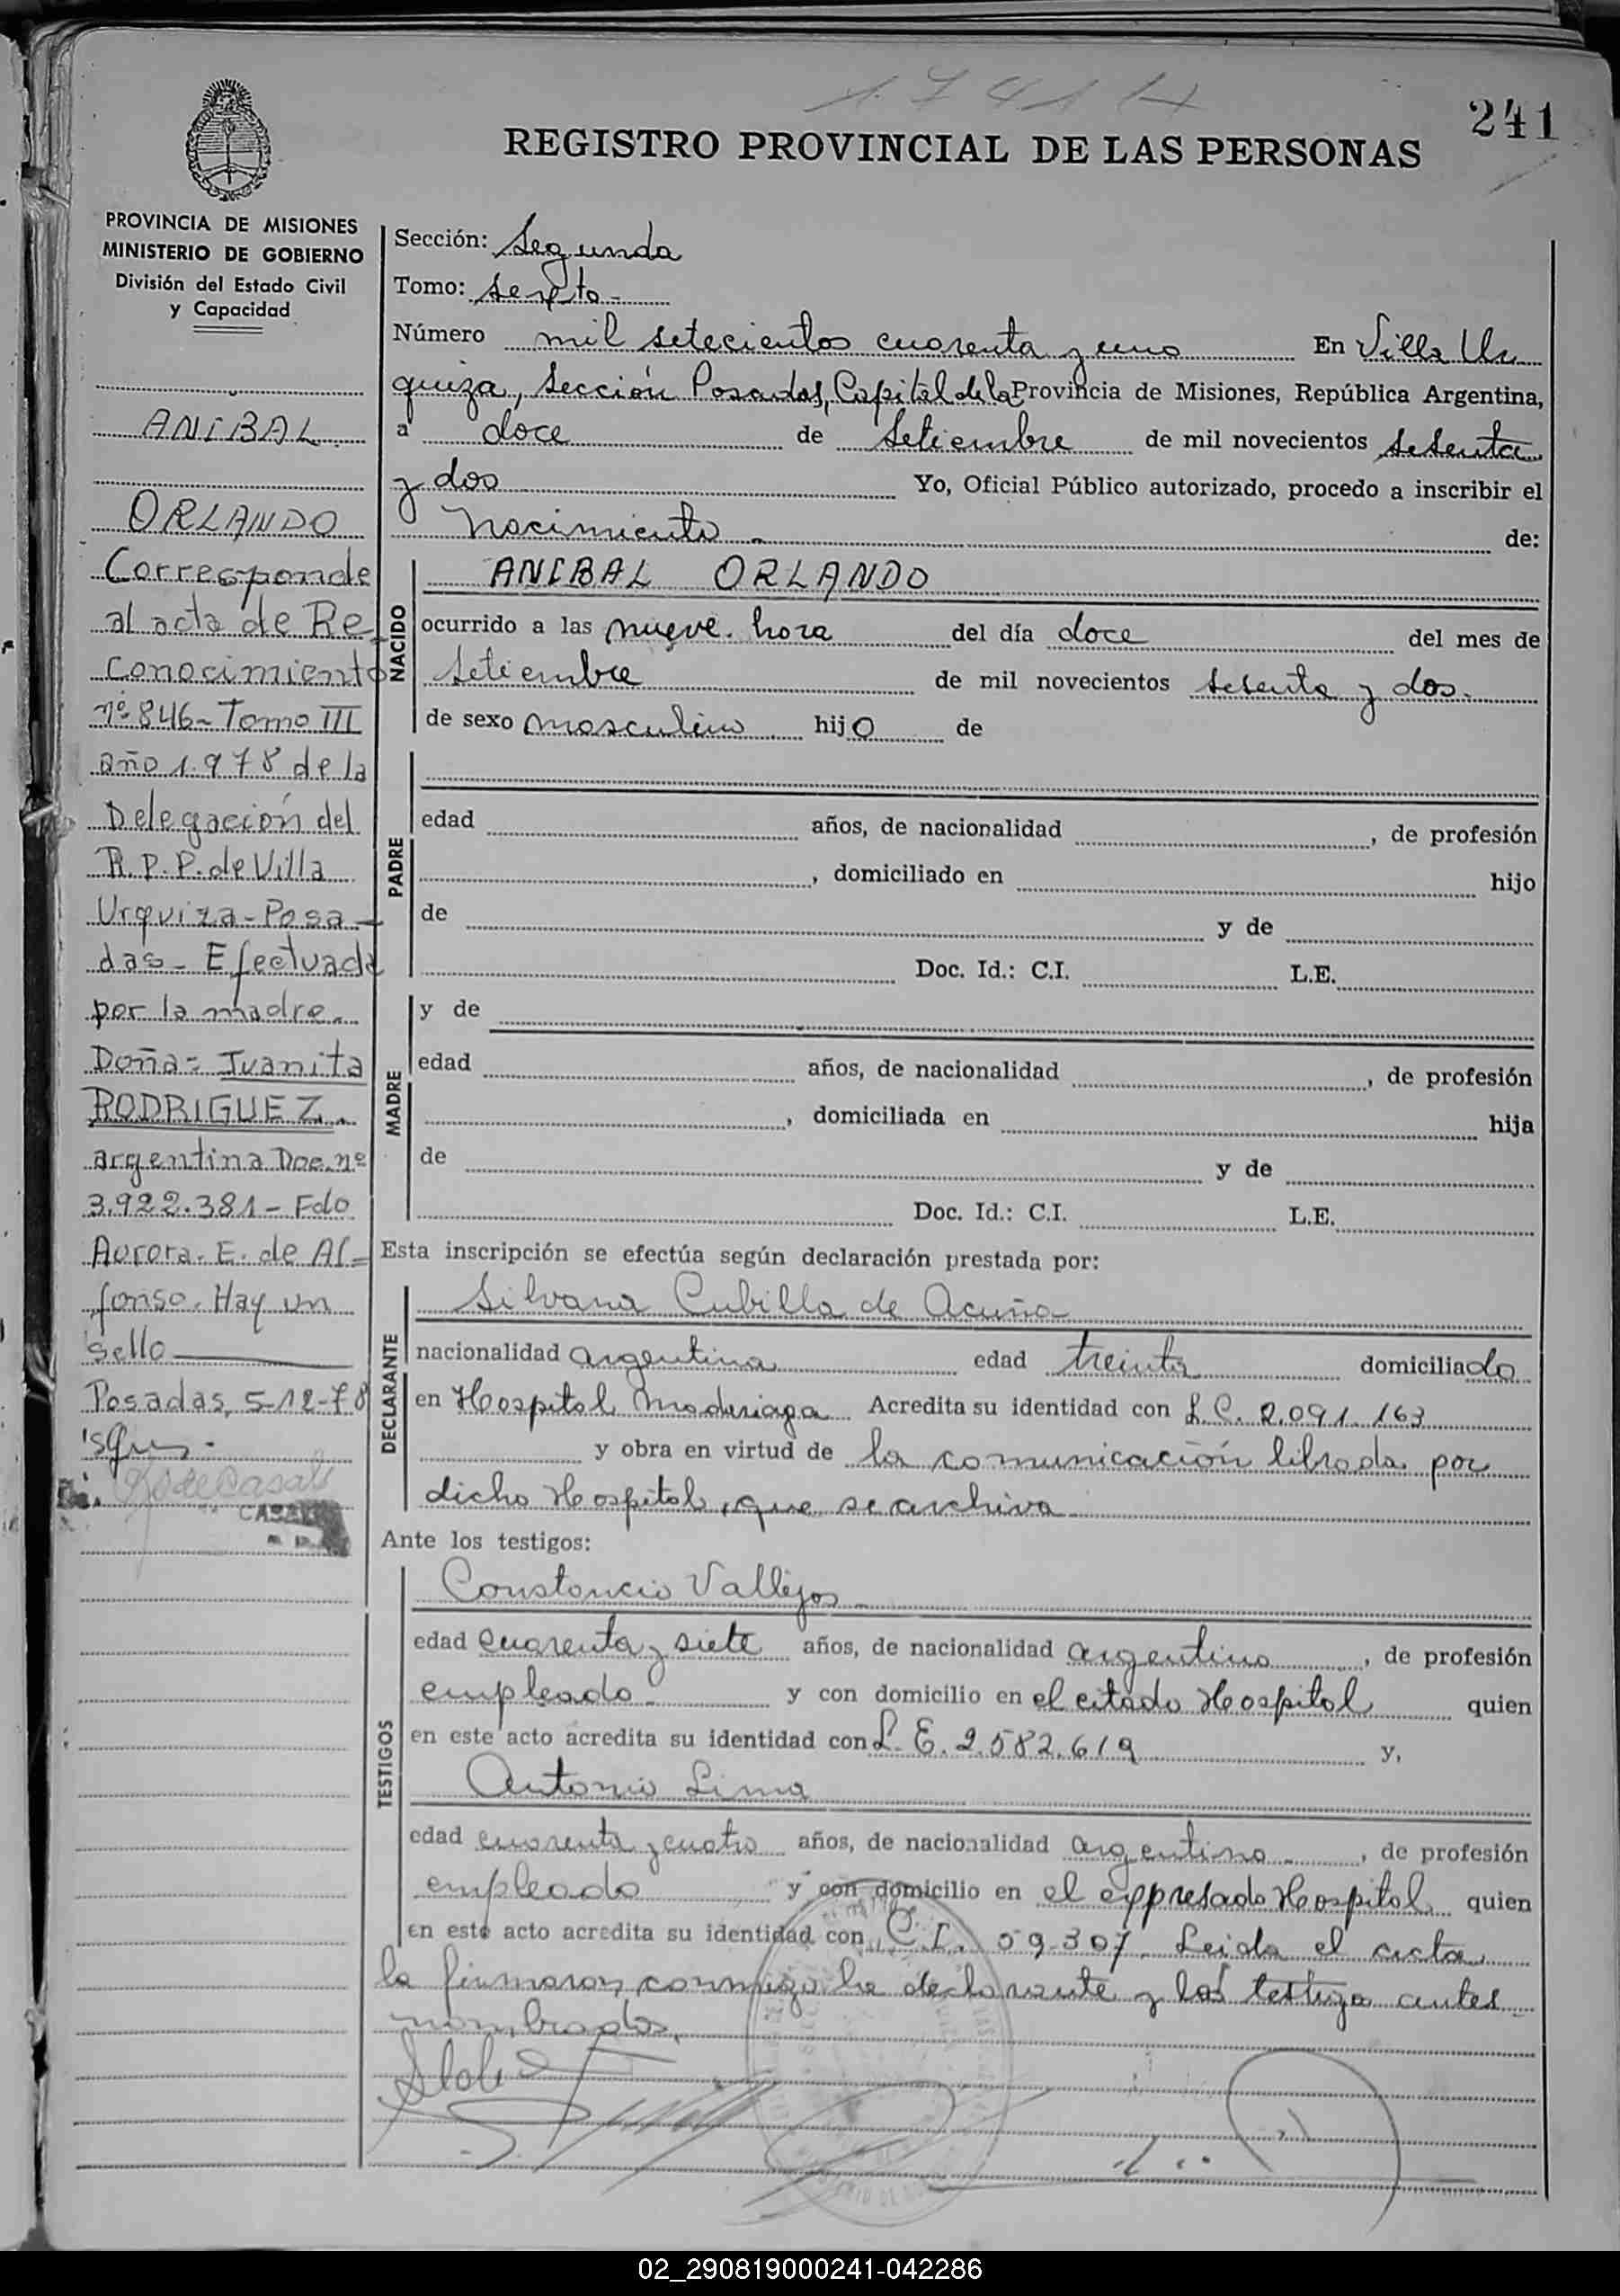 1741
241
REGISTRO PROVINCIAL DE LAS PERSONAS
PROVINCIA DE MISIONES
MINISTERIO DE GOBIERNO
División del Estado Civil
y Capacidad
ANIBAL
ORLANDO
Corresponde
al acta de Re-
conocimiento
nº 846- Tomo III
año 1.978 de la
Delegación del
R.P.P. de Villa
Urquiza-Posa-
das- Efectuada
por la madre.
Doña= Juanita
RODRIGUEZ.
argentina Doc. nº
3.922.381- Fdo
Aurora. E. de Al-
fonso. Hay un
sello
Posadas, 5-12-78
CASALS
Sección: Segunda
Tomo: sexto-
Número mil setecientos cuarenta y uno En Villa Ur
quiza, Sección Posadas, Capital de la Provincia de Misiones, República Argentina,
a doce de Setiembre de mil novecientos setenta
y dos Yo, Oficial Público autorizado, procedo a inscribir el
Nacimiento.- de:
NACIDO
ANIBAL ORLANDO
ocurrido a las nueve. hora del día doce del mes de
Setiembre de mil novecientos setenta y dos.
de sexo masculino hijo de
PADRE
edad años, de nacionalidad , de profesión
, domiciliado en hijo
de y de
Doc. Id.: C.I. L.E.
MADRE
y de
edad años, de nacionalidad , de profesión
, domiciliada en hija
de y de
Doc. Id.: C.I. L.E.
Esta inscripción se efectúa según declaración prestada por:
DECLARANTE
Silvana Cubilla de Acuña
nacionalidad argentina edad treinta domiciliado
en Hospital Madariaga Acredita su identidad con L.C. 2.091.163
y obra en virtud de la comunicación librada por
dicho Hospital, que se archiva
Ante los testigos:
TESTIGOS
Constancio Vallejos
edad cuarenta y siete años, de nacionalidad argentino , de profesión
empleado y con domicilio en el citado Hospital quien
en este acto acredita su identidad con L.E. 2.582.619 y,
Antonio Lima
edad cuarenta y cuatro años, de nacionalidad argentino , de profesión
empleado y con domicilio en el expresado Hospital quien
en este acto acredita su identidad con C.I. 59.307. Leida el acta
la firmaron conmigo la declarante y los testigo antes
nombrados.
02_290819000241-042286